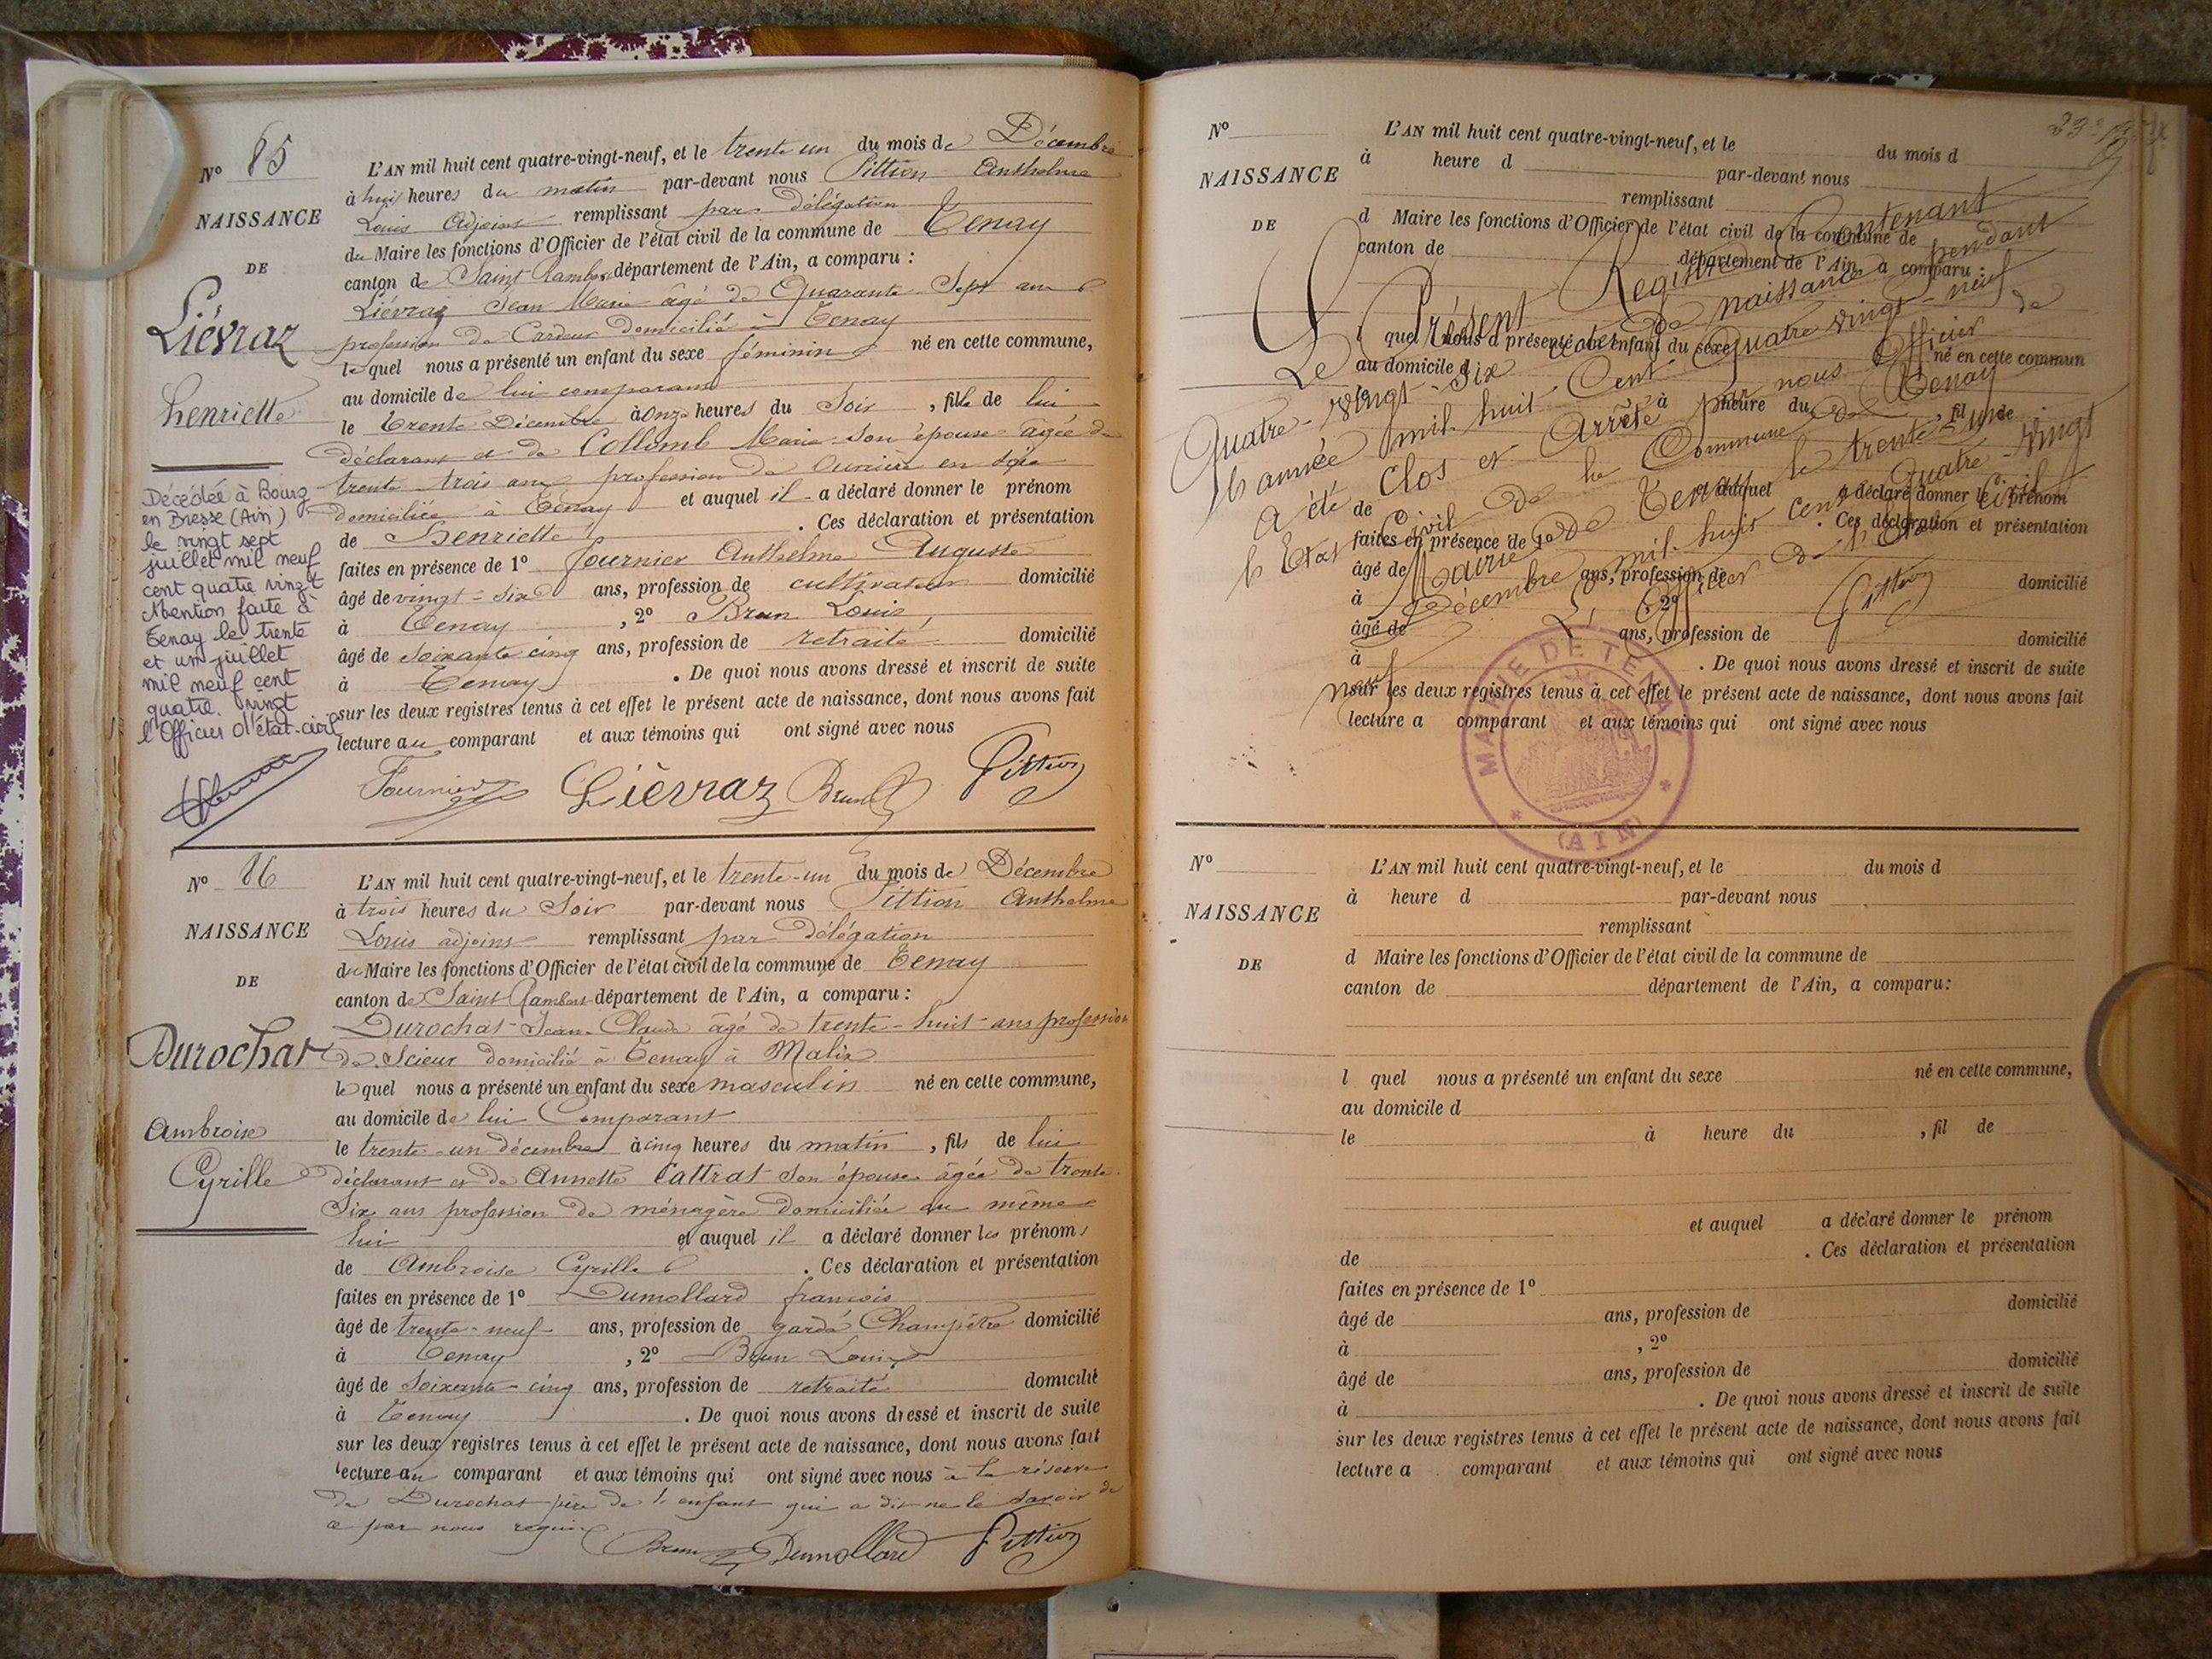 N° 85
NAISSANCE
DE
Liévraz
henriette
Décédée à Bourg
en Bresse (Ain)
le vingt sept
juillet mil neuf
cent quatre vingt
Mention faite à
Tenay le trente
et un juillet
mil neuf cent
quatre vingt
l'Officier d'état-civil
L'AN mil huit cent quatre-vingt-neuf, et le trente un du mois de Décembre
à huit heures du matin par-devant nous Pittion Anthelme
Louis Adjoint remplissant par délégation
du Maire les fonctions d'Officier de l'état civil de la commune de Tenay
canton de Saint Rambert département de l'Ain, a comparu :
Liévraz Jean Marie âgé de Quarante Sept ans
profession de Cardeur domicilié à Tenay
lequel nous a présenté un enfant du sexe féminin né en cette commune,
au domicile de lui comparant
le trente Décembre à onze heures du Soir , fille de lui
déclarant et de Collomb Marie son épouse âgée de
trente trois ans profession de Ouvrière en soie
domiciliée à Tenay et auquel il a déclaré donner le prénom
de Henriette . Ces déclaration et présentation
faites en présence de 1° fournier Anthelme Auguste
âgé de vingt-six ans, profession de cultivateur domicilié
à Tenay , 2° Brun Louis
âgé de soixante cinq ans, profession de retraité domicilié
à Tenay . De quoi nous avons dressé et inscrit de suite
sur les deux registres tenus à cet effet le présent acte de naissance, dont nous avons fait
lecture au comparant et aux témoins qui ont signé avec nous
Fournier Liévraz Brun Pittion
N° 86
NAISSANCE
DE
Durochat
Ambroise
Cyrille
L'AN mil huit cent quatre-vingt-neuf, et le trente-un du mois de Décembre
à trois heures du Soir par-devant nous Pittion Anthelme
Louis adjoint remplissant par délégation
du Maire les fonctions d'Officier de l'état civil de la commune de Tenay
canton de Saint Rambert département de l'Ain, a comparu :
Durochat Jean-Claude âgé de trente-huit ans profession
de Scieur domicilié à Tenay à Malix
lequel nous a présenté un enfant du sexe masculin né en cette commune,
au domicile de lui Comparant
le trente-un décembre à cinq heures du matin , fils de lui
déclarant et de Annette Cattrat son épouse âgée de trente
Six ans profession de ménagère domiciliée au même
lui et auquel il a déclaré donner les prénoms
de Ambroise Cyrille . Ces déclaration et présentation
faites en présence de 1° Dumollard françois
âgé de trente-neuf ans, profession de garde Champêtre domicilié
à Tenay , 2° Brun Louis
âgé de Soixante-cinq ans, profession de retraité domicilié
à Tenay . De quoi nous avons dressé et inscrit de suite
sur les deux registres tenus à cet effet le présent acte de naissance, dont nous avons fait
lecture au comparant et aux témoins qui ont signé avec nous à la réserve
de Durochat père de l'enfant qui a dit ne le savoir de
ce par nous requis
Brun Dumollard Pittion
N°
NAISSANCE
DE
L'AN mil huit cent quatre-vingt-neuf, et le du mois d
à heure d par-devant nous
remplissant
d Maire les fonctions d'Officier de l'état civil de la commune de
canton de département de l'Ain, a comparu :
l quel nous a présenté un enfant du sexe né en cette commun
au domicile d
le à heure du , fil de
et auquel a déclaré donner le prénom
de . Ces déclaration et présentation
faites en présence de 1°
âgé de ans, profession de domicilié
à , 2°
âgé de ans, profession de domicilié
à . De quoi nous avons dressé et inscrit de suite
sur les deux registres tenus à cet effet le présent acte de naissance, dont nous avons fait
lecture a comparant et aux témoins qui ont signé avec nous
Le Présent Registre Contenant
Quatre-vingt-Six actes de naissance pendant
l'année mil-huit-Cent-Quatre vingt-neuf
a été Clos et Arrêté par nous Officier de
l'Etat Civil de la Commune de Tenay
Mairie de Tenay le trente-un
Décembre mil-huit cent Quatre-vingt
neuf
L'Officier de l'Etat Civil
Pittion
MAIRIE DE TENAY
(AIN)
N°
NAISSANCE
DE
L'AN mil huit cent quatre-vingt-neuf, et le du mois d
à heure d par-devant nous
remplissant
d Maire les fonctions d'Officier de l'état civil de la commune de
canton de département de l'Ain, a comparu :
l quel nous a présenté un enfant du sexe né en cette commune,
au domicile d
le à heure du , fil de
et auquel a déclaré donner le prénom
de . Ces déclaration et présentation
faites en présence de 1°
âgé de ans, profession de domicilié
à , 2°
âgé de ans, profession de domicilié
à . De quoi nous avons dressé et inscrit de suite
sur les deux registres tenus à cet effet le présent acte de naissance, dont nous avons fait
lecture a comparant et aux témoins qui ont signé avec nous